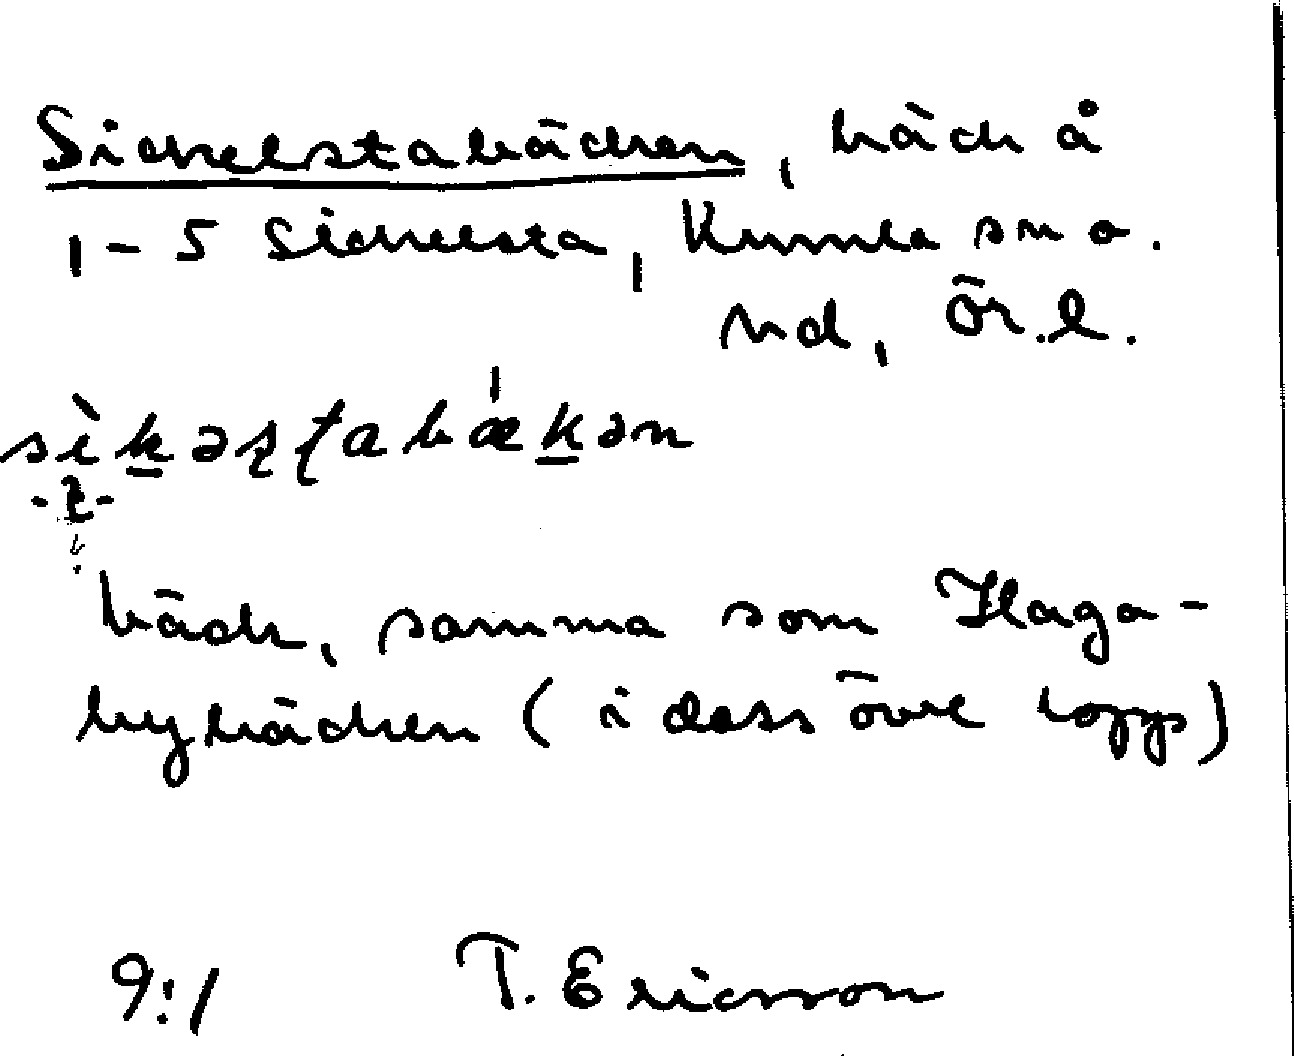 Sickelstabäcken, bäck å
1-5 Sickelsta, Kumla sn o.
hd, Ör.l.
sὶk̲əʂʈabǽk̲ən
bäck, samma som Haga-
bybäcken (i dess övre lopp)
9:1 T. Ericsson